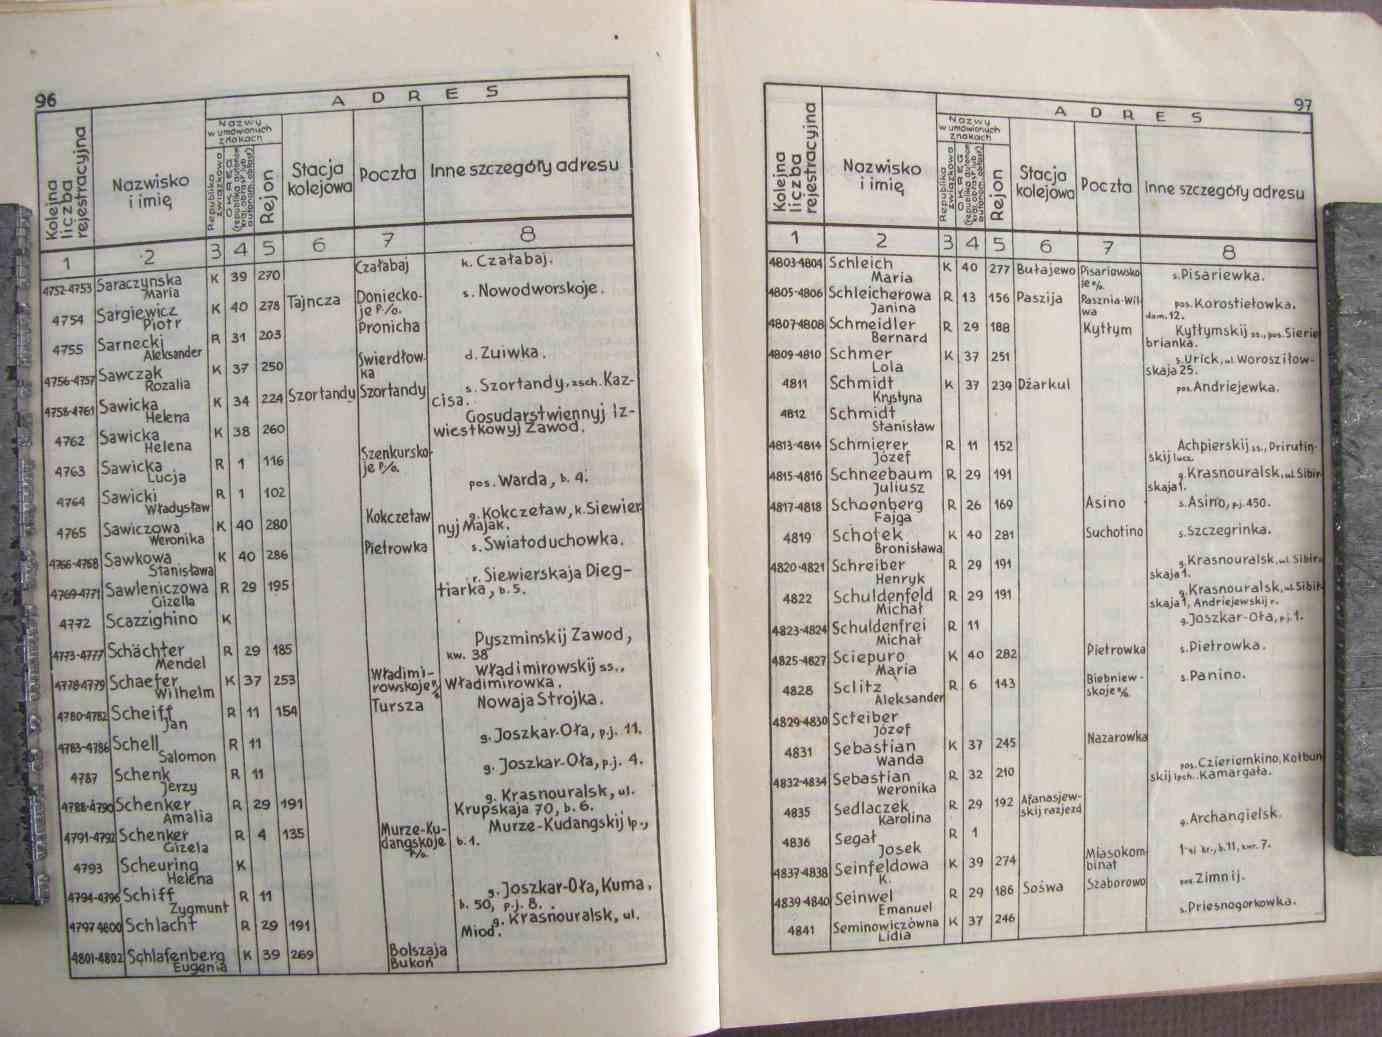 96
A D R E S
Kolejna liczba rejestracyjna
Nazwisko i imię
Nazwy w umówionych znakach
Republika związkowa
Rejon
Stacja kolejowa
Poczta
Inne szczegóły adresu
1 2 3 4 5 6 7 8
4752-4753 Saraczynska Maria K 39 270 Czałabaj k. Czałabaj.
4754 Sargiewicz Piotr K 40 278 Tajncza Doniecko-je p/o. s. Nowodworskoje.
4755 Sarnecki Aleksander R 31 203 Pronicha
4756-4757 Sawczak Rozalia K 37 250 Swierdłow-ka d. Zuiwka.
4758-4761 Sawicka Helena K 34 224 Szortandy Szortandy s. Szortandy, zsch. Kaz-cisa.
4762 Sawicka Helena K 38 260 Gosudarstwiennyj Iz-wiestkowyj Zawod.
4763 Sawicka Lucja R 1 116 Szenkursko-je p/o.
4764 Sawicki Władysław R 1 102 pos. Warda, b. 4.
4765 Sawiczowa Weronika K 40 280 Kokczetaw g. Kokczetaw, k. Siewier nyj Majak.
4766-4768 Sawkowa Stanisława K 40 286 Pietrowka s. Swiatoduchowka.
4769-4771 Sawleniczowa Gizella R 29 195 r. Siewierskaja Dieg-tiarka, b. 5.
4772 Scazzighino K
4773-4777 Schächter Mendel R 29 185 Pyszminskij Zawod, kw. 38
4778-4779 Schaefer Wilhelm K 37 253 Władimi-rowskoje Władimirowskij ss., Władimirowka.
4780-4782 Scheiff Jan R 11 154 Tursza Nowaja Strojka.
4783-4786 Schell Salomon R 11 g. Joszkar-Oła, p.j. 11.
4787 Schenk Jerzy R 11 g. Joszkar-Oła, p.j. 4.
4788-4790 Schenker Amalia R 29 191 g. Krasnouralsk, ul. Krupskaja 70, b. 6.
4791-4792 Schenker Gizela R 4 135 Murze-Ku-dangskoje p/o. Murze-Kudangskij lp., b. 1.
4793 Scheuring Helena K
4794-4796 Schiff Zygmunt R 11 g. Joszkar-Oła, Kuma. b. 50, p.j. 8.
4797-4800 Schlacht R 29 191 g. Krasnouralsk, ul. Miod.
4801-4802 Schlafenberg Eugenia K 39 269 Bolszaja Bukoń
97
A D R E S
Kolejna liczba rejestracyjna
Nazwisko i imię
Nazwy w umówionych znakach
Republika związkowa
Rejon
Stacja kolejowa
Poczta
Inne szczegóły adresu
1 2 3 4 5 6 7 8
4803-4804 Schleich Maria K 40 277 Bułajewo Pisariowsko je p/o. s. Pisariewka.
4805-4806 Schleicherowa Janina R 13 156 Paszija Pasznia-Wil-wa pos. Korostiełowka. dom. 12.
4807-4808 Schmeidler Bernard R 29 188 Kytłym Kytłymskij ss., pos. Sierie brianka.
4809-4810 Schmer Lola K 37 251 s. Urick, ul. Woroszilow-skaja 25.
4811 Schmidt Krystyna K 37 239 Dżarkul pos. Andriejewka.
4812 Schmidt Stanisław
4813-4814 Schmierer Józef R 11 152 Achpierskij ss., Prirutin-skij lucz.
4815-4816 Schneebaum Juliusz R 29 191 g. Krasnouralsk, ul. Sibir skaja 1.
4817-4818 Schoenberg Fajga R 26 169 Asino s. Asino, p.j. 450.
4819 Schotek Bronisława K 40 281 Suchotino s. Szczegrinka.
4820-4821 Schreiber Henryk R 29 191 g. Krasnouralsk, ul. Sibir skaja 1.
4822 Schuldenfeld Michał R 29 191 g. Krasnouralsk, ul. Sibir skaja 1, Andriejewskij r.
4823-4824 Schuldenfrei Michał R 11 g. Joszkar-Oła, p.j. 1.
4825-4827 Sciepuro Maria K 40 282 Pietrowka s. Pietrowka.
4828 Sclitz Aleksander R 6 143 Biebniew-skoje p/o. s. Panino.
4829-4830 Scteiber Józef
4831 Sebastian Wanda K 37 245 Nazarowka
4832-4834 Sebastian Weronika R 32 210 pos. Czieriomkino, Kołbun skij lpch. Kamargała.
4835 Sedlaczek Karolina R 29 192 Afanasjew-skij razjezd
4836 Segał Josek R 1 g. Archangielsk. 1-yj kr., b. 11, kwr. 7.
4837-4838 Seinfeldowa K. K 39 274 Miasokom binat
4839-4840 Seinwel Emanuel R 29 186 Sośwa Szaborowo pos. Zimnij.
4841 Seminowiczówna Lidia K 37 246 s. Priesnogorkowka.